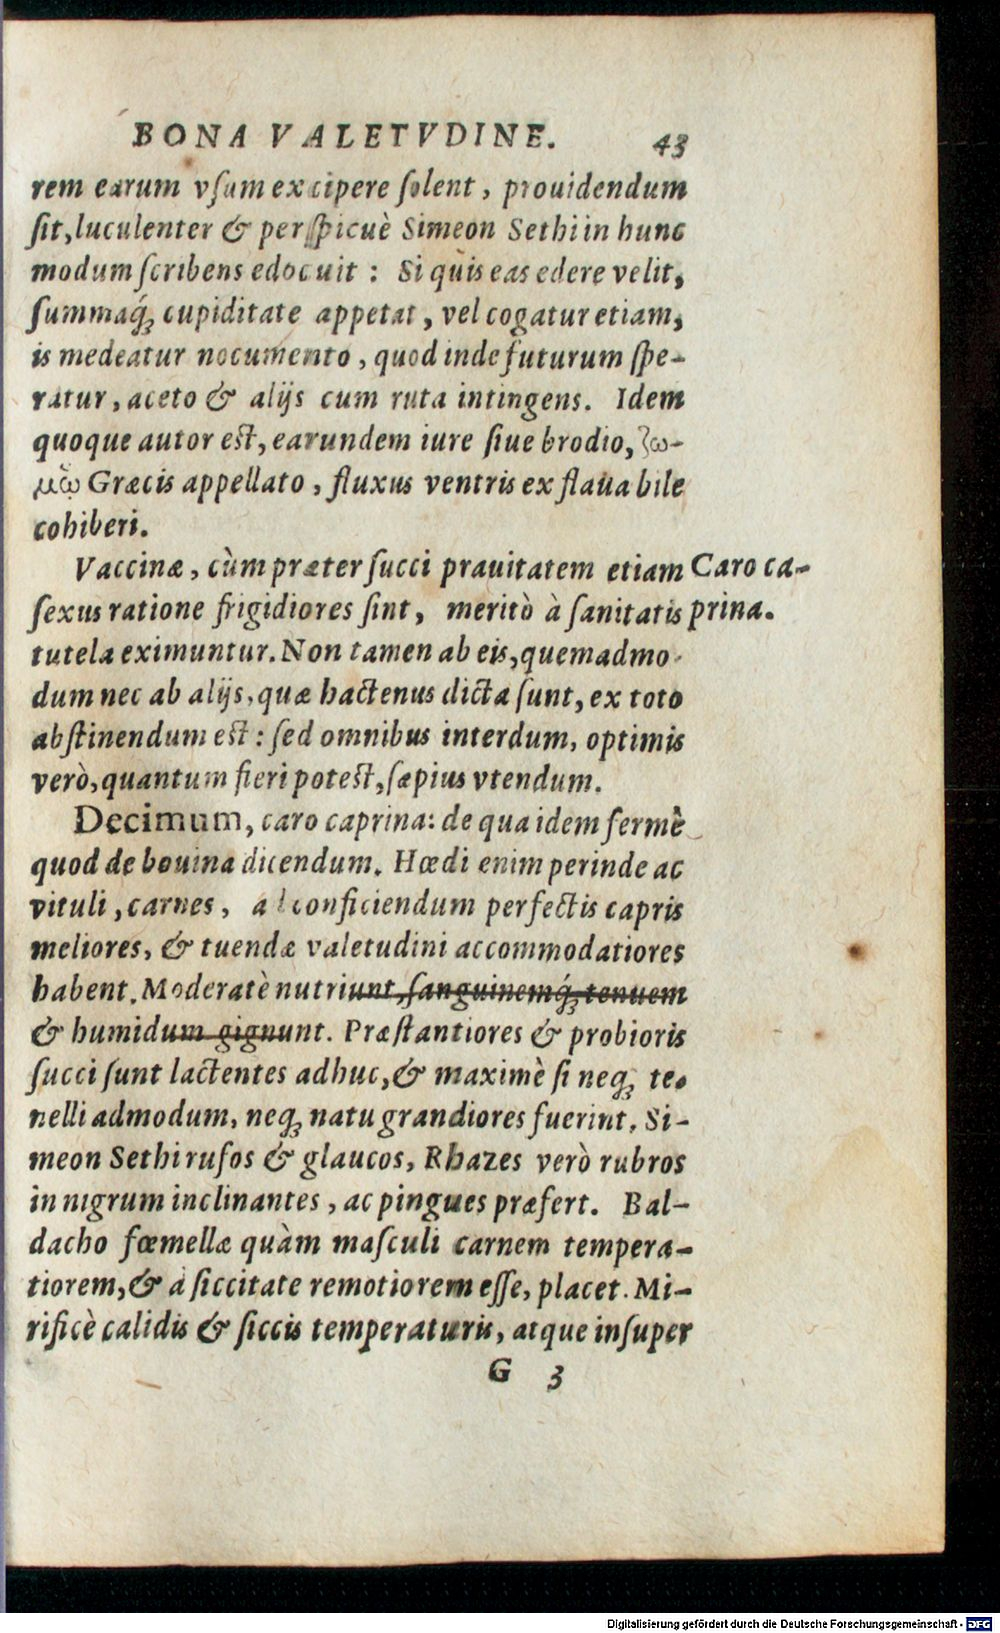 BONA VALETVDINE. 43
rem earum vſum excipere ſolent, prouidendum
ſit, luculenter & perſpicuè Simeon Sethi in hunc
modum ſcribens edocuit : Si quis eas edere velit,
ſummaq́; cupiditate appetat, vel cogatur etiam,
is medeatur nocumento, quod inde futurum ſpe-
ratur, aceto & alijs cum ruta intingens. Idem
quoque autor eſt, earundem iure ſiue brodio, ζω-
μῷ Græcis appellato, fluxus ventris ex flaua bile
cohiberi.
Vaccinæ, cùm præter ſucci prauitatem etiam
ſexus ratione frigidiores ſint, meritò à ſanitatis
Caro ca-
prina.
tutela eximuntur. Non tamen ab eis, quemadmo-
dum nec ab alijs, quæ hactenus dicta ſunt, ex toto
abſtinendum eſt : ſed omnibus interdum, optimis
verò, quantum fieri poteſt, ſæpius vtendum.
Decimum, caro caprina: de qua idem fermè
quod de bouina dicendum. Hœdi enim perinde ac
vituli, carnes, ad conficiendum perfectis capris
meliores, & tuendæ valetudini accommodatiores
habent. Moderatè nutriunt, ſanguinemq́; tenuem
& humidum gignunt. Præſtantiores & probioris
ſucci ſunt lactentes adhuc, & maximè ſi neq; te-
nelli admodum, neq; natu grandiores fuerint. Si-
meon Sethi rufos & glaucos, Rhazes verò rubros
in nigrum inclinantes, ac pingues præfert. Bal-
dacho fœmellæ quàm maſculi carnem tempera-
tiorem, & à ſiccitate remotiorem eſſe, placet. Mi-
rificè calidis & ſiccis temperaturis, atque inſuper
G 3
Digitalisierung gefördert durch die Deutsche Forschungsgemeinschaft - DFG